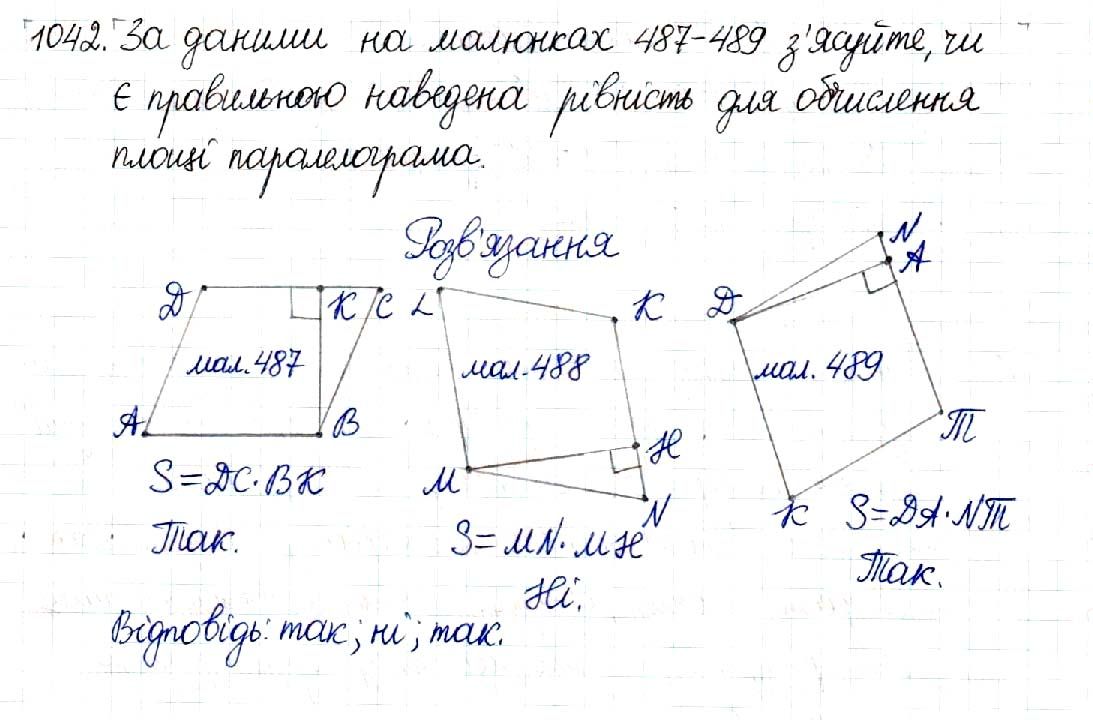 1042. За даними на малюнках 487-489 з'ясуйте, чи
є правильною наведена рівність для обчислення
площі паралелограма.
Розв'язання
D K C
мал. 487
A B
S = DC · BK
Так.
L K
мал. 488
M H
N
S = MN · MH
Ні.
N
A
D
мал. 489
T
K
S = DA · NT
Так.
Відповідь: так; ні; так.